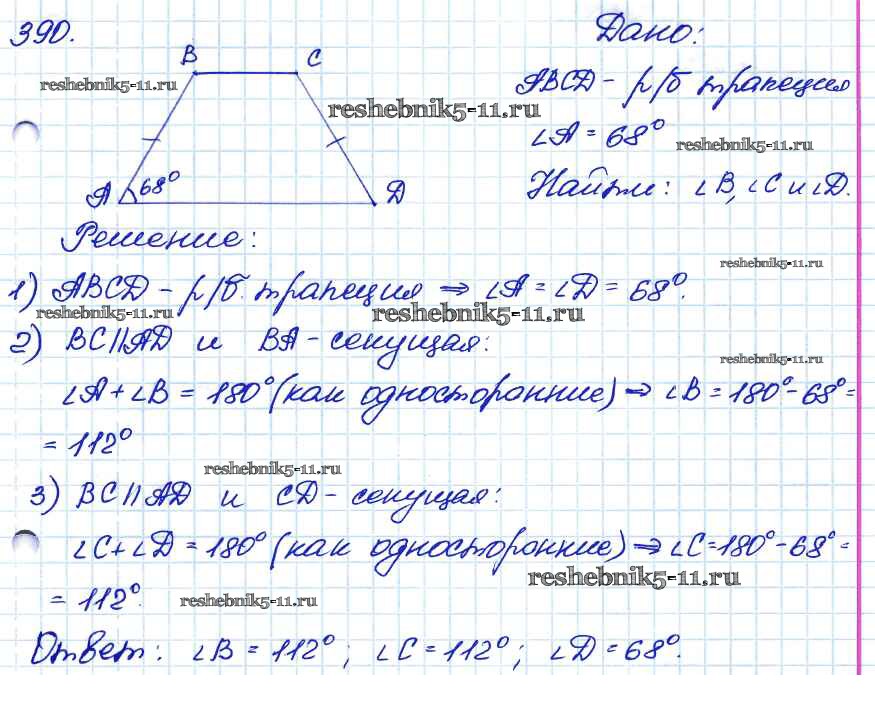 390.
Дано:
B C
reshebnik5-11.ru
ABCD - р/б трапеция
reshebnik5-11.ru
∠A = 68°
reshebnik5-11.ru
A 68° D
Найти: ∠B, ∠C и ∠D.
Решение:
reshebnik5-11.ru
1) ABCD - р/б. трапеция ⇒ ∠A = ∠D = 68°.
reshebnik5-11.ru
reshebnik5-11.ru
2) BC||AD и BA - секущая:
reshebnik5-11.ru
∠A + ∠B = 180° (как односторонние) ⇒ ∠B = 180° - 68° =
= 112°
reshebnik5-11.ru
3) BC||AD и CD - секущая:
∠C + ∠D = 180° (как односторонние) ⇒ ∠C = 180° - 68° =
reshebnik5-11.ru
= 112°.
reshebnik5-11.ru
Ответ: ∠B = 112°; ∠C = 112°; ∠D = 68°.